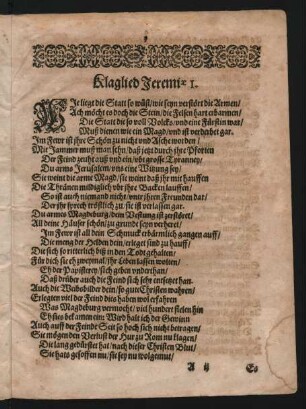 Klaglied Jeremiæ 1.
WJe liegt die Statt so wüst/ wie seyn verstört die Armen/
Ach möcht es doch die Stein/ die Felsen hart erbarmen/
Die Statt die so voll Volcks/ und eine Fürstin war/
Muß dienen wie ein Magd/ und ist verderbet gar.
Jm Fewr ist ihre Schön zu nicht und Asche worden/
Mit Jammer muß man sehn/ daß jetzt durch ihre Pforten
Der Feind zeucht auß und ein/ übt grosse Tyranney/
Du arme Jerusalem/ uns eine Witung sey;
Sie weint die arme Magd/ sie weint daß ihr mit hauffen
Die Thränen mildiglich übr ihre Backen lauffen/
So ist auch niemand nicht/ unter ihren Freunden dar/
Der ihr sprech tröstlich zu/ sie ist verlassen gar.
Du armes Magdeburg/ dein Vestung ist zerstöret/
All deine Häuser schön/ zu grunde seyn verheret/
Jm Fewr ist all dein Schmuck erbärmlich gangen auff/
Die meng der Helden dein/ erlegt sind zu hauff/
Die sich so ritterlich biß in den Todt gehalten/
Für dich sie Ehrzumal/ ihr Leben lassen wolten/
Eh der Papisterey sich geben unterthan/
Daß drüber auch die Feind sich sehr entsetzet han.
Auch die Weibsbilder dein/ so gute Christen wahren/
Erlegten viel der Feind diß haben wol erfahren
Was Magdeburg vermocht/ viel hundert fielen hin
Eh sies bekommen ein; Wird halt ich der Gewinn
Auch auff der Feinde Seit so hoch sich nicht betragen/
Sie mögen den Verlust der Hur zu Rom nu klagen/
Die lang gedürstet hat/ nach dieser Christen Blut/
Sie hats gesoffen nu/ sie sey nu wolgemut/
A ij
Es